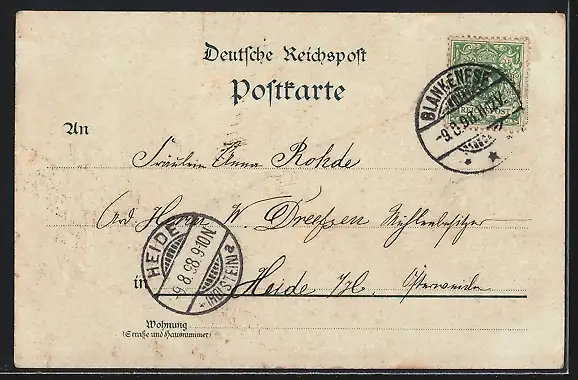 Deutsche Reichspost
Postkarte
BLANKENESE
-9.8.98.
An
Fräulein Anna Rohde
Adr. Herrn W. Dreessen Mühlenbesitzer
HEIDE
-9.8.98.9-10N.
(HOLSTEIN) a
in Heide i/H. Österweide
Wohnung
(Straße und Hausnummer)